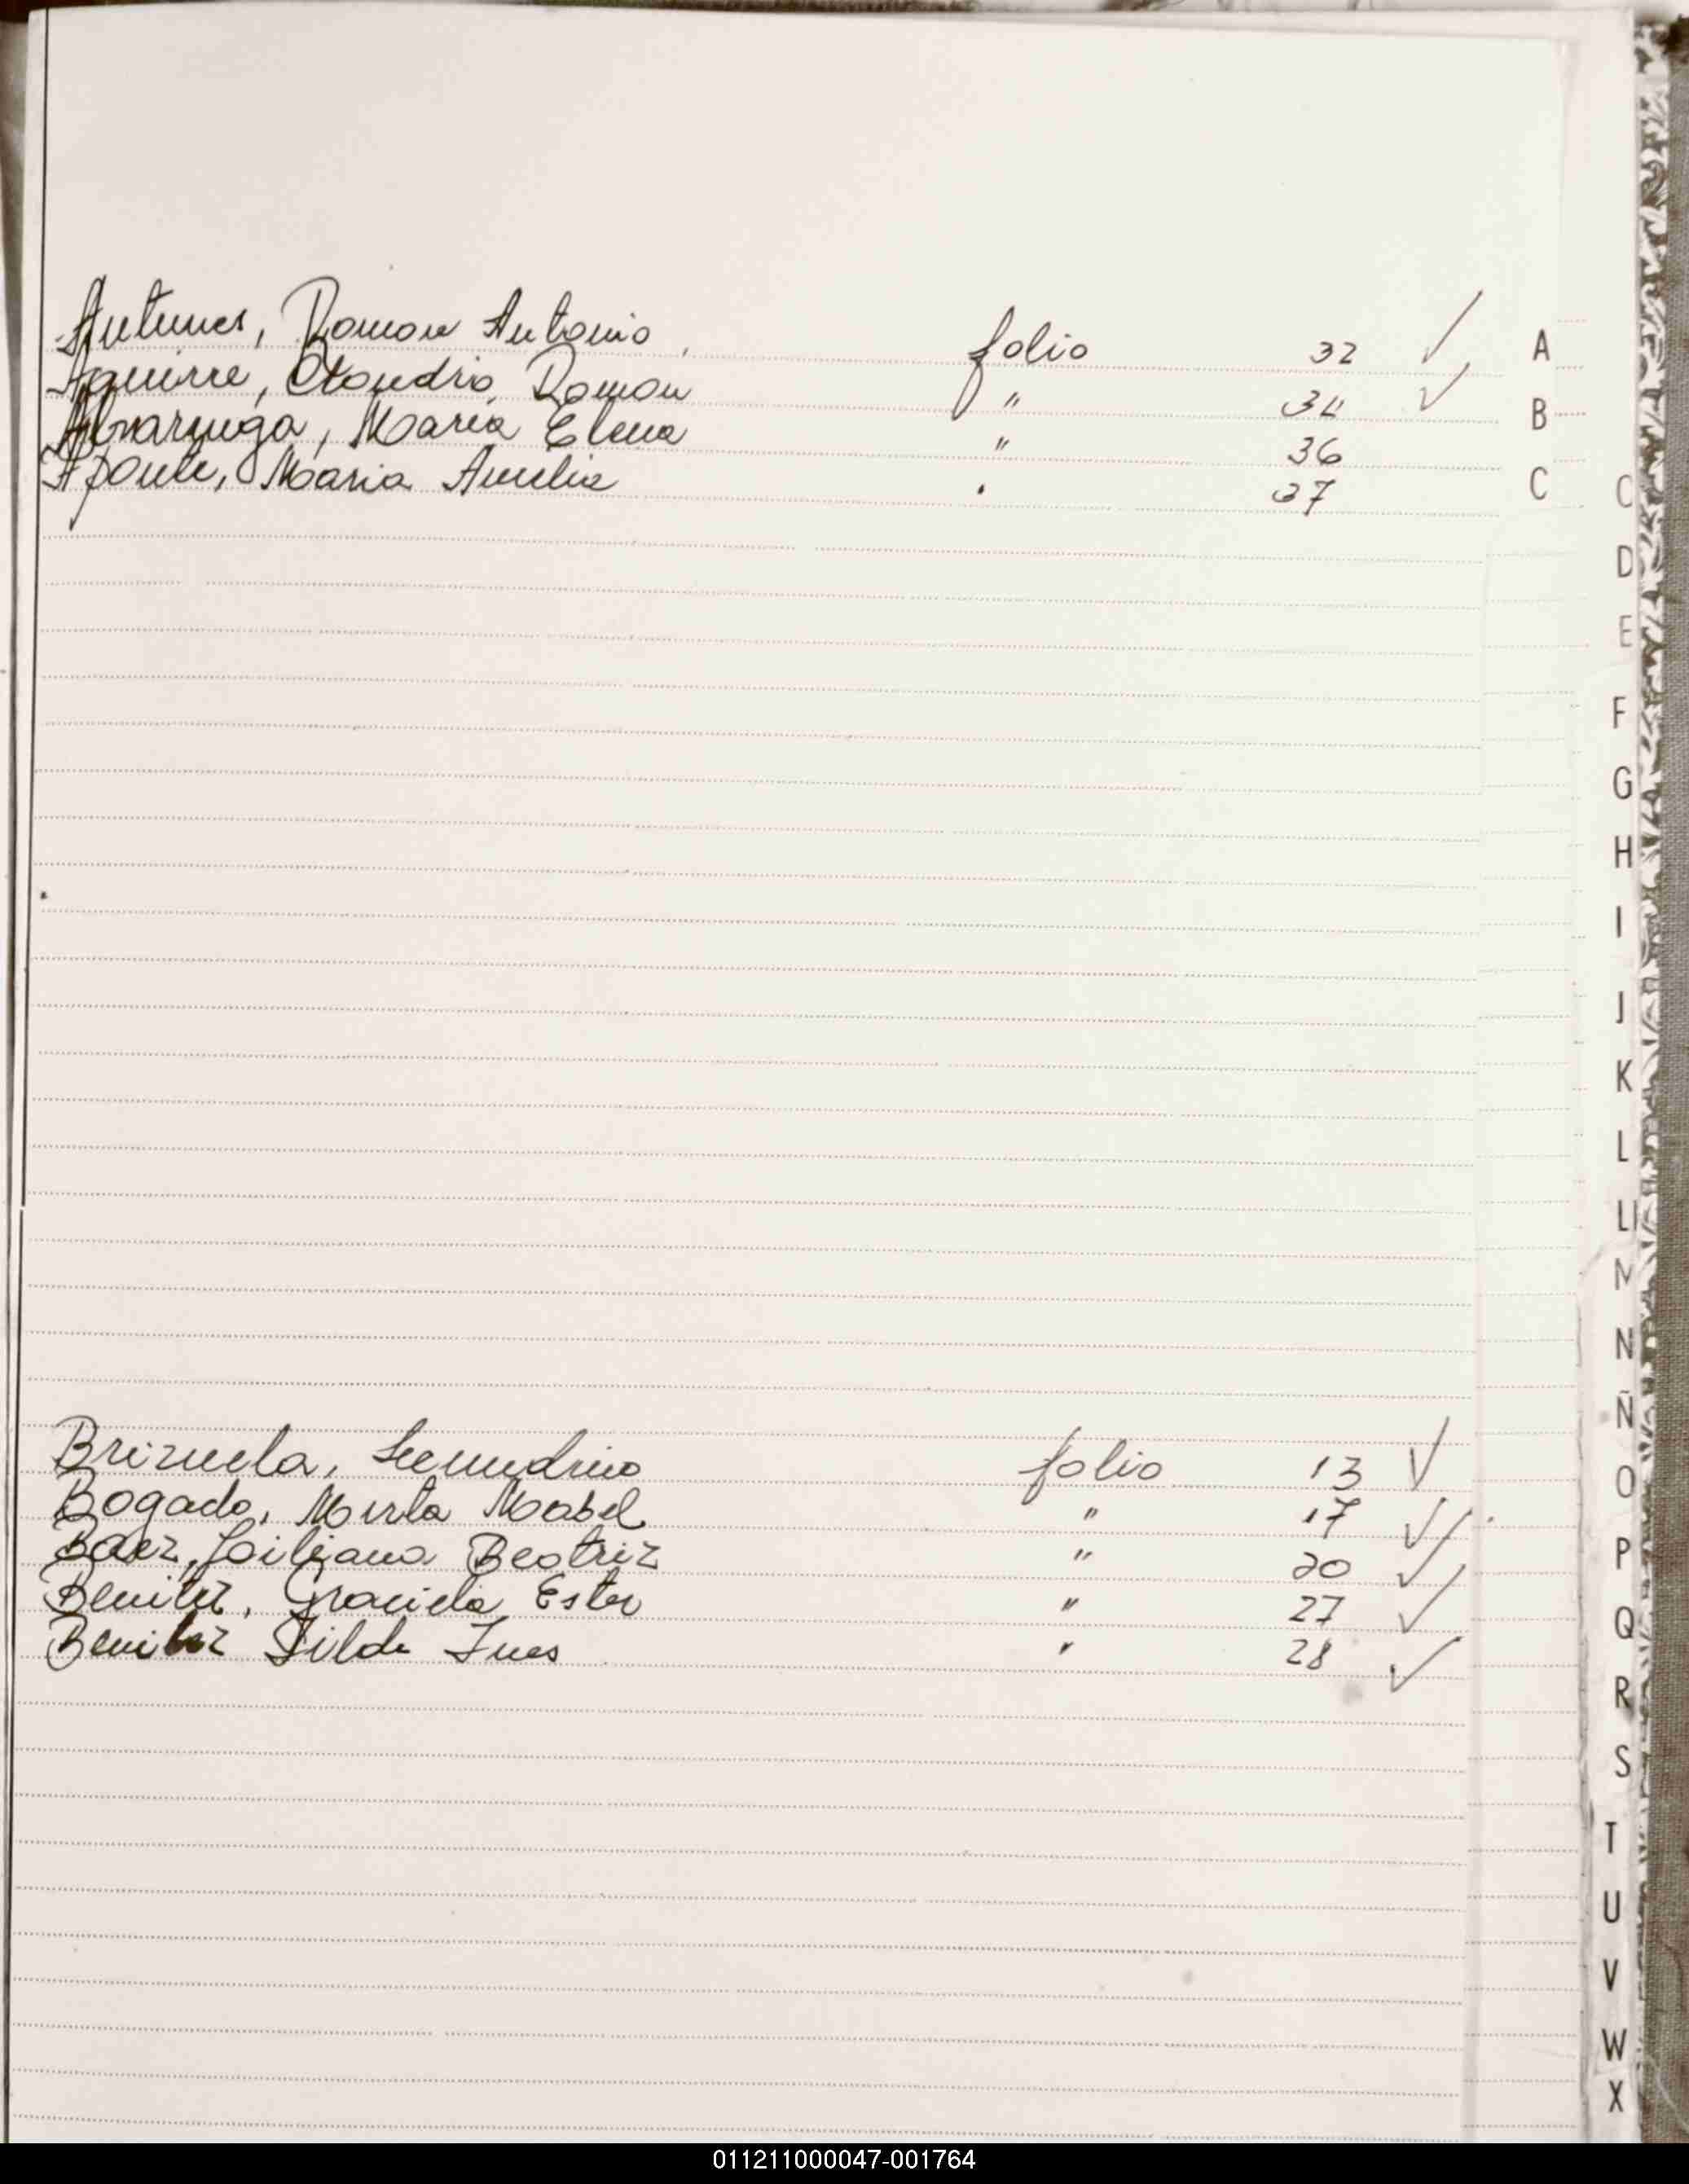 Antunes, Ramon Antonio, folio 32 ✓ A
Aguirre, Claudio Ramon " 34 ✓ B
Maria Elena " 36
Aponte, Maria Aurelia " 37 C C
D
E
F
G
H
I
J
K
L
Ll
M
N
Ñ
Brizuela, Secundino folio 13 ✓ O
Bogado, Mirta Mabel " 17 ✓
Baez, Liliana Beatriz " 20 ✓ P
Benitez, Graciela Ester " 27 ✓ Q
Benitez Ines " 28 ✓
R
S
T
U
V
W
X
011211000047-001764